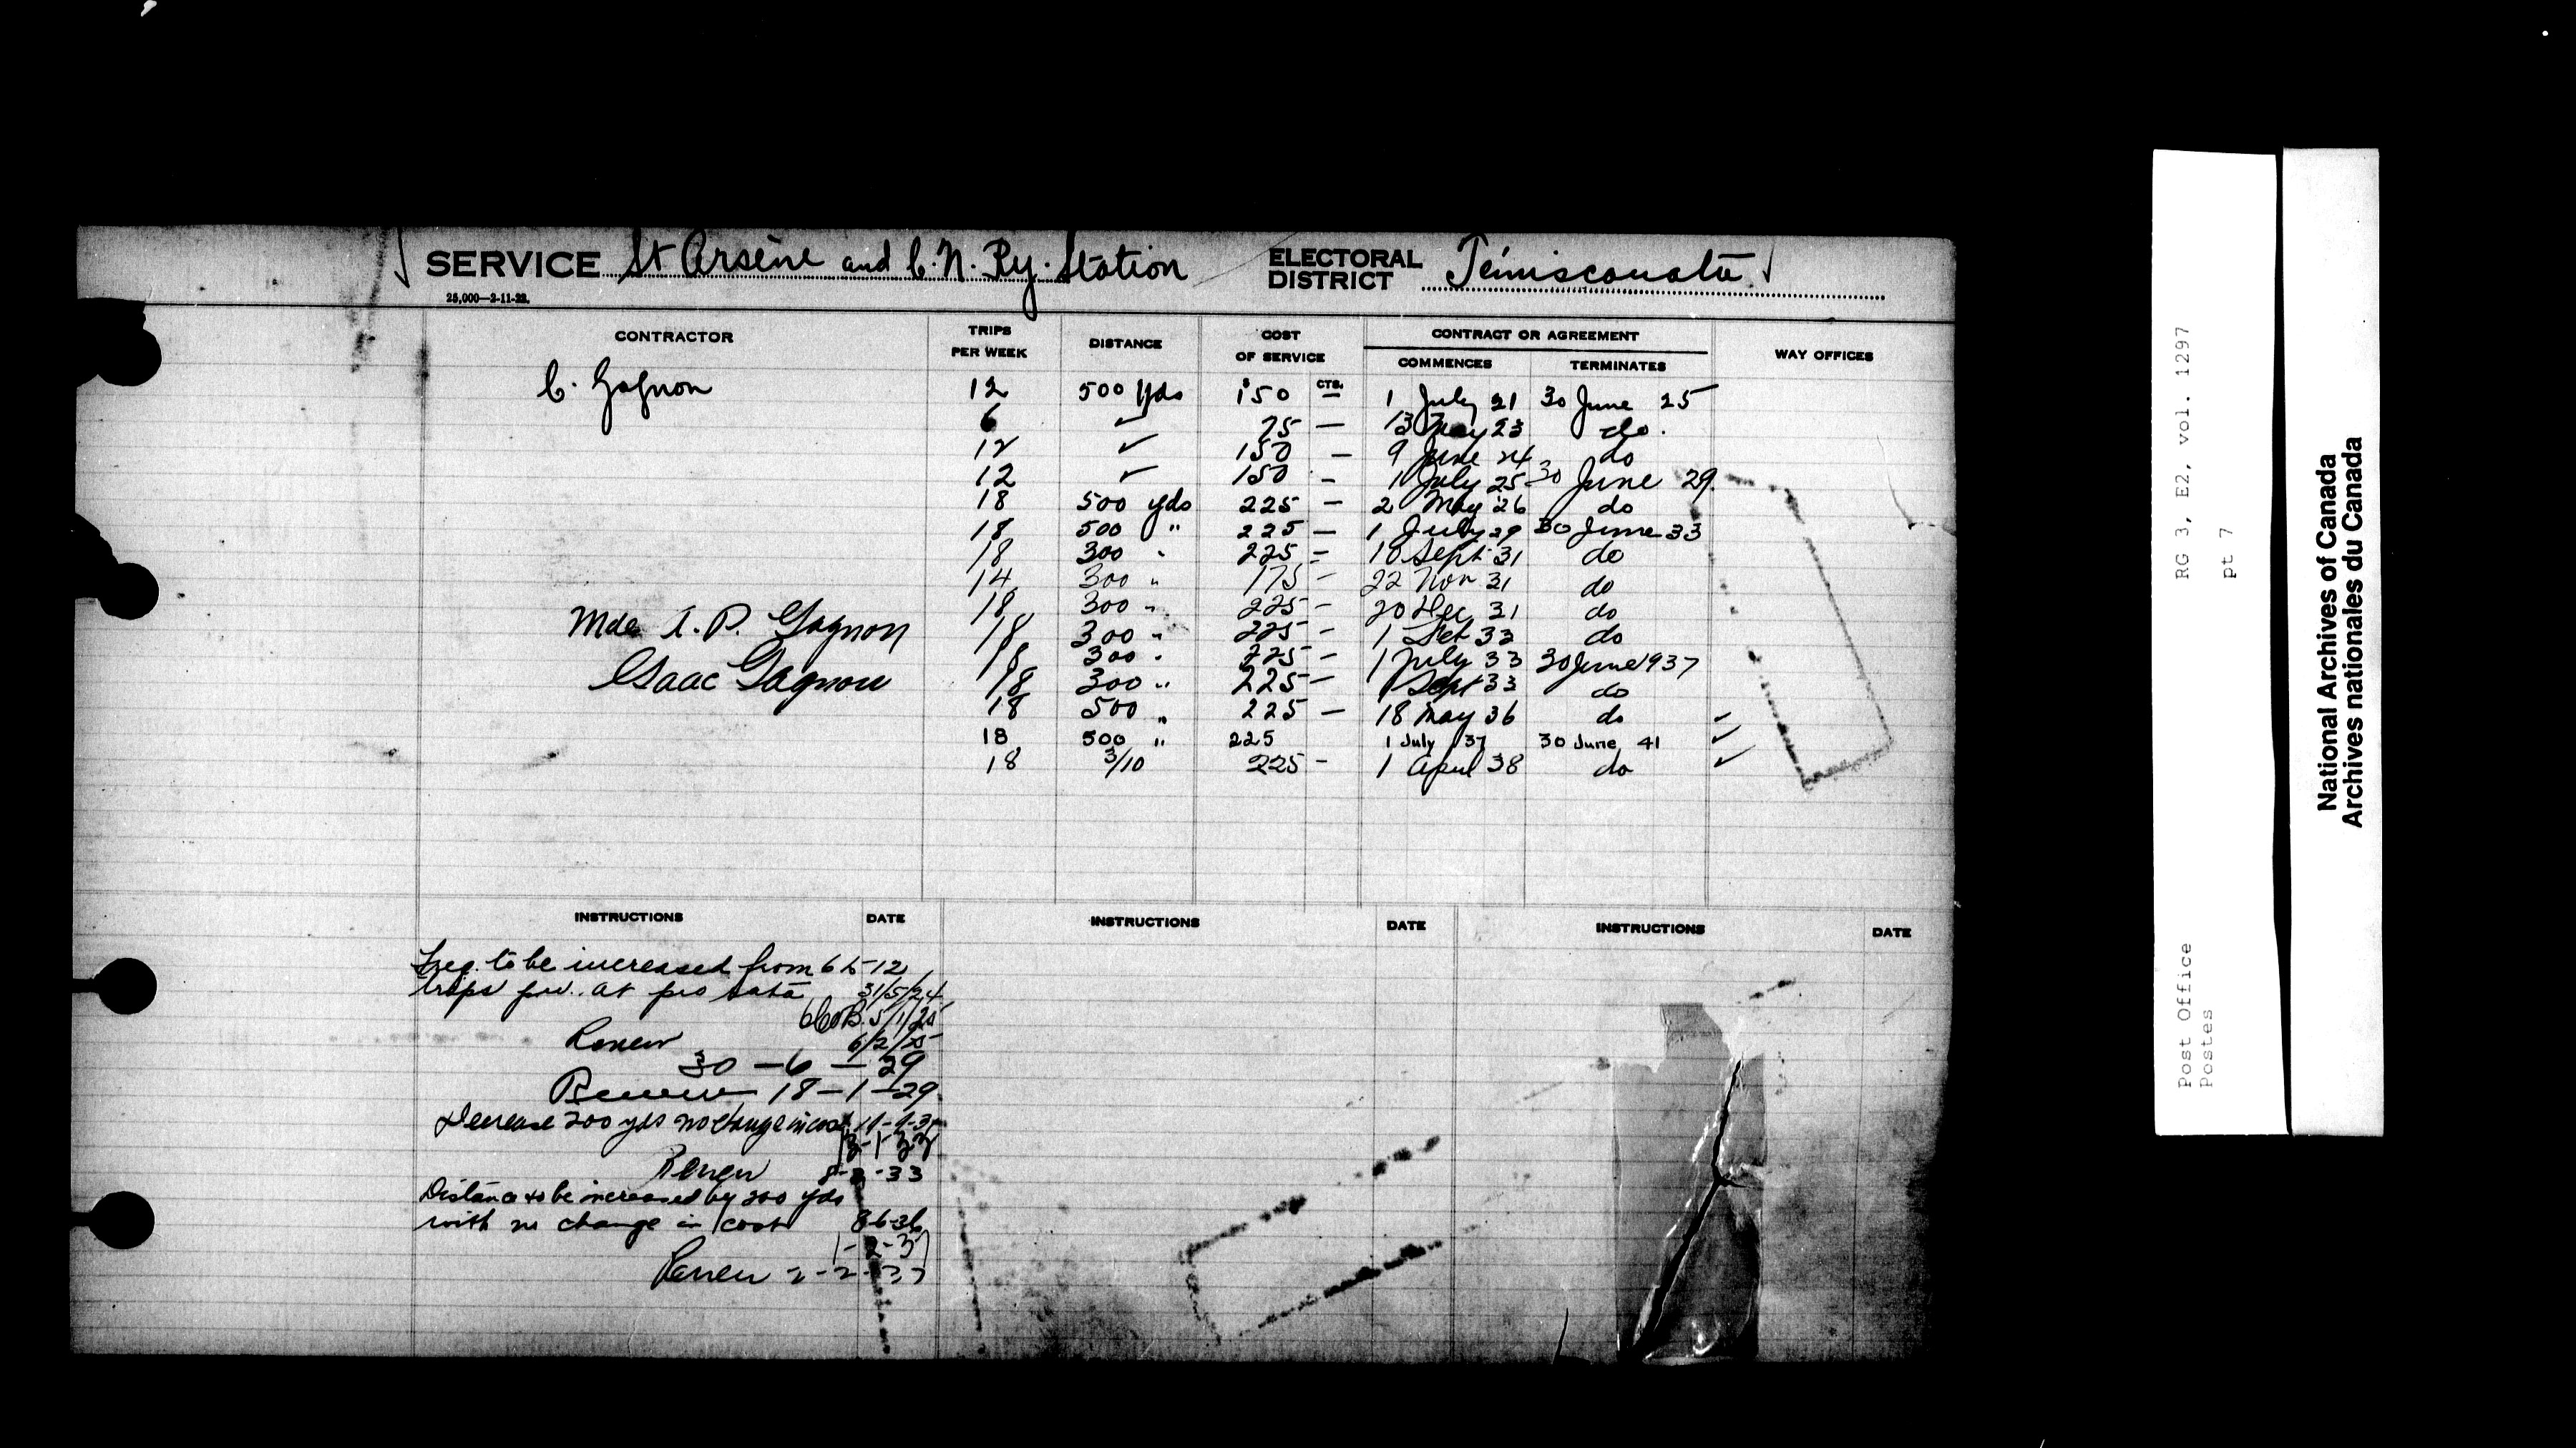 SERVICE St Arsène and C.N. Ry. Station ELECTORAL DISTRICT Témiscouata
25,000—2-11-22.
CONTRACTOR TRIPS PER WEEK DISTANCE COST OF SERVICE CONTRACT OR AGREEMENT WAY OFFICES
COMMENCES TERMINATES
$ CTS.
C. Gagnon 12 500 yds 150 — 1 July 21 30 June 25
6 ✓ 75 — 13 May 23 do.
12 ✓ 150 — 9 June 24 do
12 ✓ 150 - 1 July 25 30 June 29.
18 500 yds 225 — 2 May 26 do
18 500 " 225 — 1 July 29 30 June 33
18 300 " 225 — 10 Sept 31 do
14 300 " 175 - 22 Nov 31 do
18 300 " 225 - 20 Dec 31 do
Mde A. P. Gagnon 18 300 " 225 - 1 33 do
18 300 " 225 - 1 July 33 30 June 1937
Isaac Gagnon 18 300 " 225 - 1 Sept 33 do
18 500 " 225 — 18 May 36 do ✓
18 500 " 225 1 July 37 30 June 41 ✓
18 3/10 225 - 1 April 38 do ✓
INSTRUCTIONS DATE INSTRUCTIONS DATE INSTRUCTIONS DATE
Freq. to be increased from 6 to 12
trips p.w. at pro rata 31/5/24
5/1/25
Renew 6/2/25
30 - 6 - 29
Renew 18-1-29.
Decrease 200 yds no change in cost
Renew 8-2-33
Distance to be increased by 200 yds
with no change in cost 8-6-36
1-2-37
Renew 2-2-37
RG 3, E2, vol. 1297
pt 7
Post Office
Postes
National Archives of Canada
Archives nationales du Canada